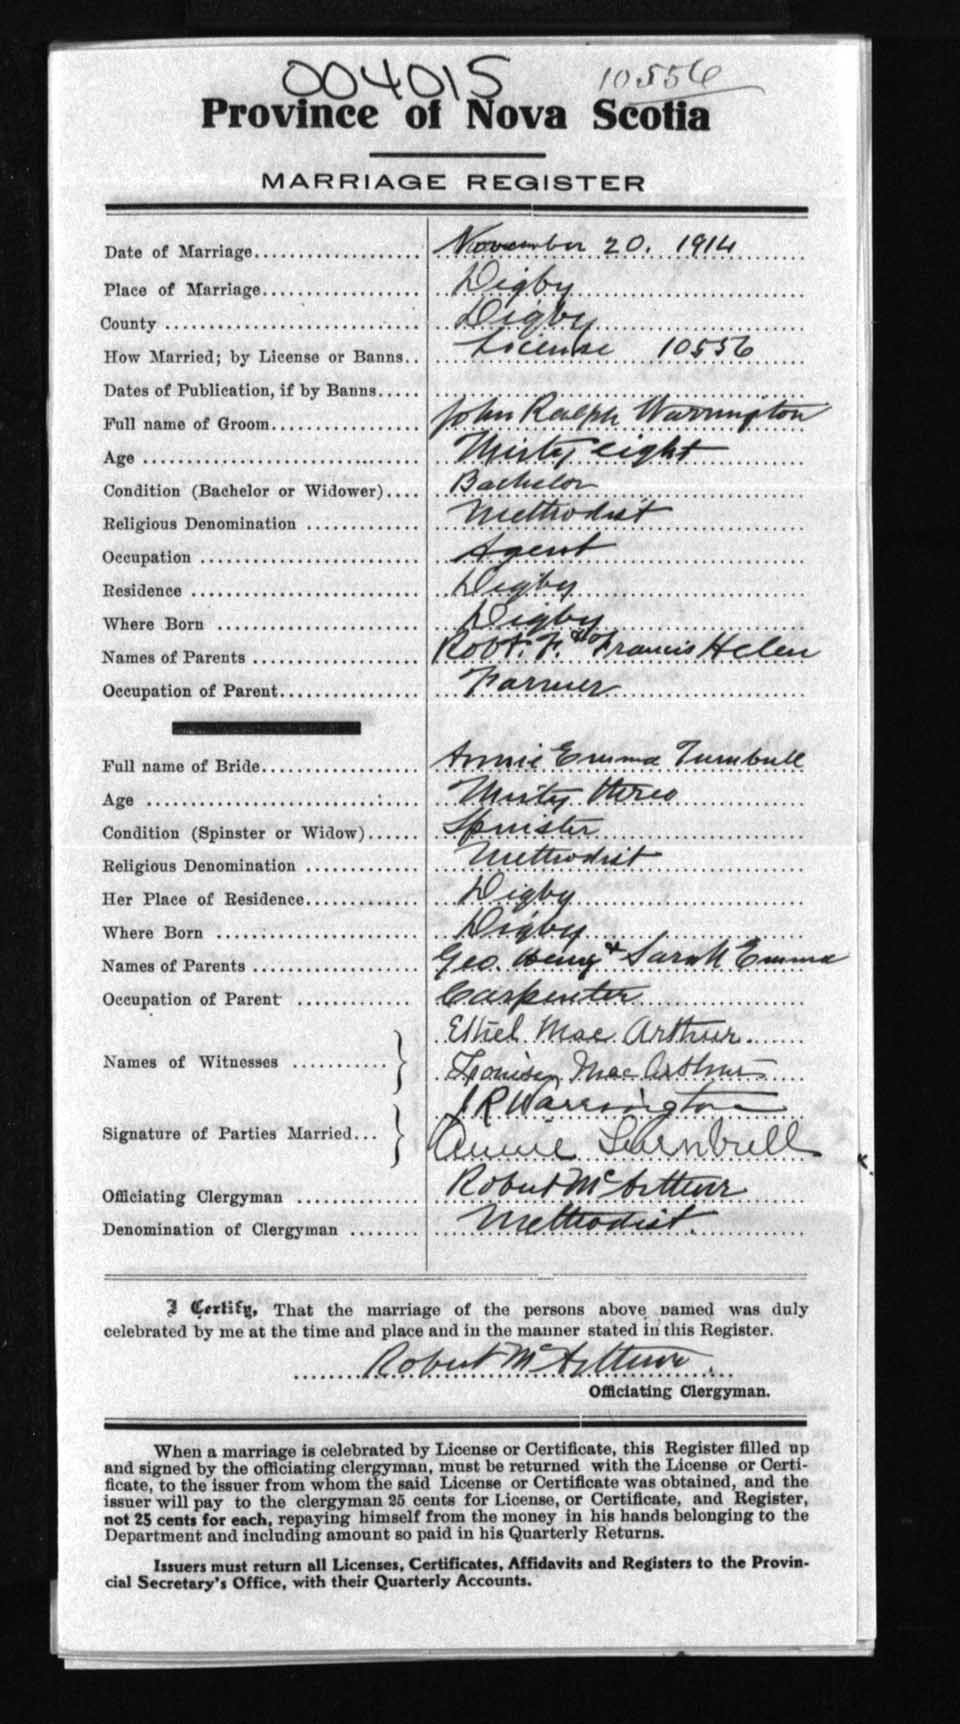 004015 10556
Province of Nova Scotia
MARRIAGE REGISTER
Date of Marriage................... November 20. 1914
Place of Marriage.................. Digby
County ............................ Digby
How Married; by License or Banns.. License 10556
Dates of Publication, if by Banns.....
Full name of Groom................. John Ralph Warrington
Age ............................... Thirty eight
Condition (Bachelor or Widower).... Bachelor
Religious Denomination ............. Methodist
Occupation ......................... Agent
Residence .......................... Digby
Where Born ......................... Digby
Names of Parents ................... Robt. F. & Francis Helen
Occupation of Parent................ Farmer
Full name of Bride.................. Annie Emma Turnbull
Age ................................ Thirty three
Condition (Spinster or Widow)...... Spinster
Religious Denomination ............. Methodist
Her Place of Residence............. Digby
Where Born ......................... Digby
Names of Parents ................... Geo. Henry & Sarah Emma
Occupation of Parent ............. Carpenter
Ethel Mac Arthur
Names of Witnesses ...........
Louise Mac Arthur
J R Warrington
Signature of Parties Married...
Annie Turnbull
Officiating Clergyman .............. Robert McArthur
Denomination of Clergyman ........ Methodist.
I Certify, That the marriage of the persons above named was duly
celebrated by me at the time and place and in the manner stated in this Register.
Robert McArthur.
Officiating Clergyman.
When a marriage is celebrated by License or Certificate, this Register filled up
and signed by the officiating clergyman, must be returned with the License or Certi-
ficate, to the issuer from whom the said License or Certificate was obtained, and the
issuer will pay to the clergyman 25 cents for License, or Certificate, and Register,
not 25 cents for each, repaying himself from the money in his hands belonging to the
Department and including amount so paid in his Quarterly Returns.
Issuers must return all Licenses, Certificates, Affidavits and Registers to the Provin-
cial Secretary's Office, with their Quarterly Accounts.